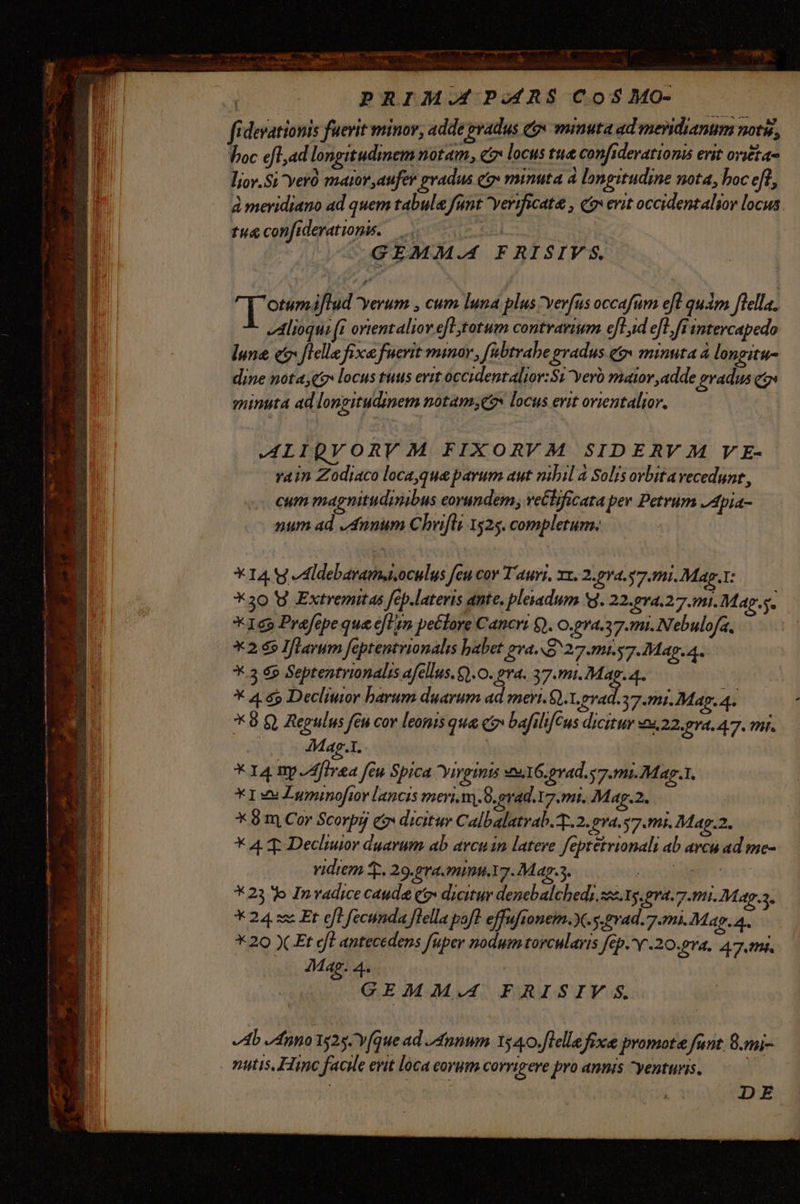 PRIMA PARS COSMO-
ſiderationis fuerit minor, adde gradus & minuta ad meridianum notū,
hoc eſt, ad longitudinem notam, & locus tuæ conſiderationis erit orieta-
lior. Si verò maior, aufer gradus & minuta à longitudine nota, hoc eſt,
à meridiano ad quem tabulæ ſunt verificatæ, & erit occidentalior locus
tuæ conſiderationis.
GEMMA FRISIVS.
Totum iſtud verum, cum luna plus verſus occaſum eſt quàm ſtella.
Alioqui ſi orientalior eſt, totum contrarium eſt, id eſt, ſi intercapedo
lunæ & ſtellæ fixæ fuerit minor, ſubtrahe gradus & minuta à longitu-
dine nota, & locus tuus erit occidentalior: Si verò maior, adde gradus &
minuta ad longitudinem notam, & locus erit orientalior.
ALIQVORVM FIXORVM SIDERVM VE-
ra in Zodiaco loca, quæ parum aut nihil à Solis orbita recedunt,
cum magnitudinibus eorundem, rectificata per Petrum Apia-
num ad Annum Chriſti 1525. completum.
*14 ♉ Aldebaram, oculus ſeu cor Tauri, ♊. 2. gra. 57. mi. Mag. 1:
*30 ♉ Extremitas ſep. lateris ante. pleiadum ♉. 22. gra. 27. mi. Mag. 5.
*1 ♋ Præſepe quæ eſt in pectore Cancri ♌. 0. gra. 37. mi. Nebuloſa.
*2 ♋ Iſtarum ſeptentrionalis habet gra. ♋ 27. mi. 57. Mag. 4.
*3 ♋ Septentrionalis aſellus. ♌. 0. gra. 37. mi. Mag. 4.
*4 ♋ Decliuior harum duarum ad meri. ♌. 1. grad. 37. mi. Mag. 4.
*8 ♌ Regulus ſeu cor leonis quæ & baſiliſcus dicitur ♌, 22. gra. 47. mi.
Mag. 1.
*14 ♍ Aſtræa ſeu Spica virginis ♎ 16. grad. 57. mi. Mag. 1.
*1 ♎ Luminoſior lancis meri. ♏. 8. grad. 17. mi. Mag. 2.
*8 ♏ Cor Scorpij & dicitur Calbalatrab. ♐. 2. gra. 57. mi. Mag. 2.
*4 ♐ Decliuior duarum ab arcu in latere ſeptētrionali ab arcu ad me-
ridiem ♐. 29. gra. minu. 17. Mag. 3.
*23 ♑ In radice caudæ & dicitur denebalchedi. ♒. 15. gra. 7. mi. Mag. 3.
*24 ♒ Et eſt ſecunda ſtella poſt effuſionem. ♓. 5. grad. 7. mi. Mag. 4.
*20 ♓ Et eſt antecedens ſuper nodum torcularis ſep. ♈. 20. gra. 47. mi.
Mag. 4.
GEMMA FRISIVS.
Ab Anno 1525. vſque ad Annum 1540. ſtellæ fixæ promotæ ſunt. 8. mi-
nutis. Hinc facile erit loca eorum corrigere pro annis venturis.
DE